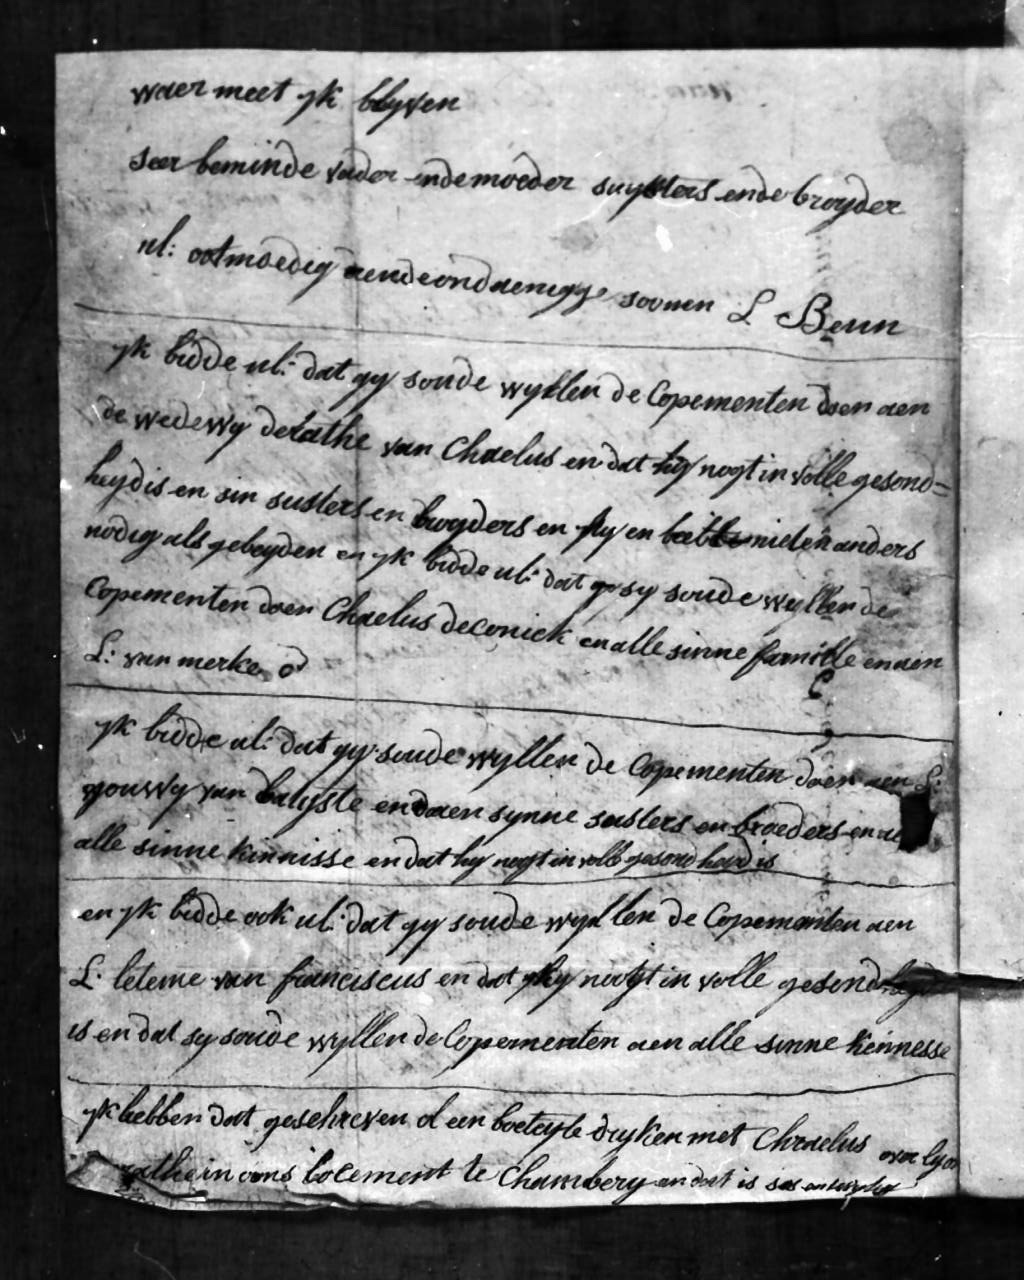 waer meet yk blyven
seer beminde vader ende moeder suysters ende broyder
ul: ootmoedig aendeondaenigge soonen L Beun
yk bidde ul: dat gy soude wyllen de Copementen doen aen
de wedewy delathe van Chaelus en dat hy nogt in volle gesond=
heyd is en sin susters en broyders en sy en hebbe nieten anders
nodig als gebeyden en yk bidde ul: dat gy sy soude wyllen de
Copementen doen Chaelus deconick en alle sinne famille en aen
L: van merke
yk bidde ul: dat gy soude wyllen de Copementen doen aen L:
gouwy van en daen synne susters en broeders en
alle sinne kinnisse en dat hy nogt in volle gesond heyd is
en yk bidde ook ul: dat gy soude wyllen de Copementen aen
L: leteme van franciscus en dat hy noogt in volle gesond
is en dat sy soude wyllen de Copementen aen alle sinne kennesse
yk hebben dat geschreven d een boeteyle dryken met Chraelus
in oons locement te Chambery en dat is